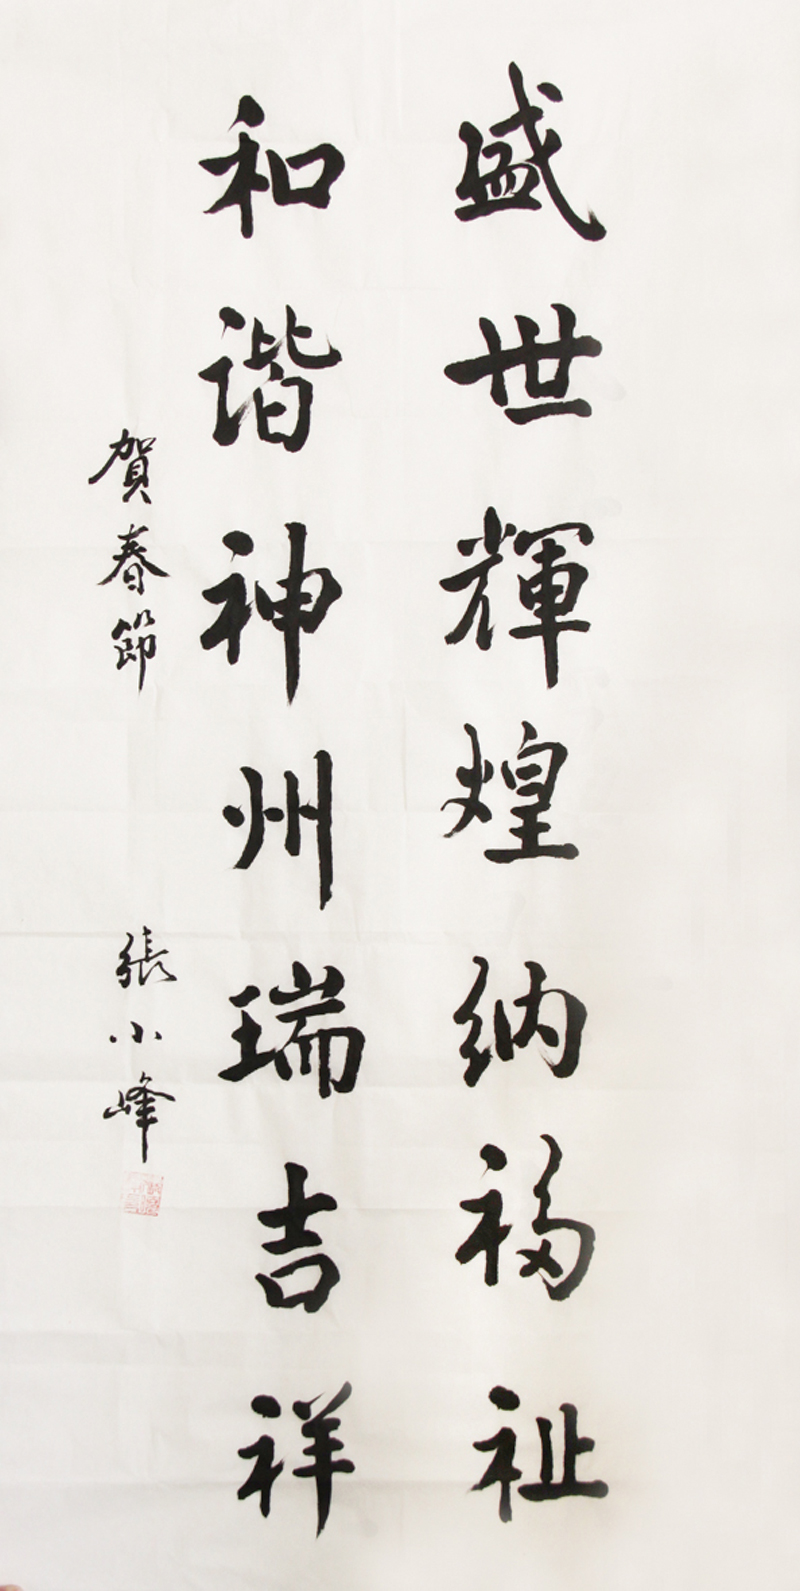 盛世輝煌纳福祉
和谐神州瑞吉祥
賀春節
張小峰